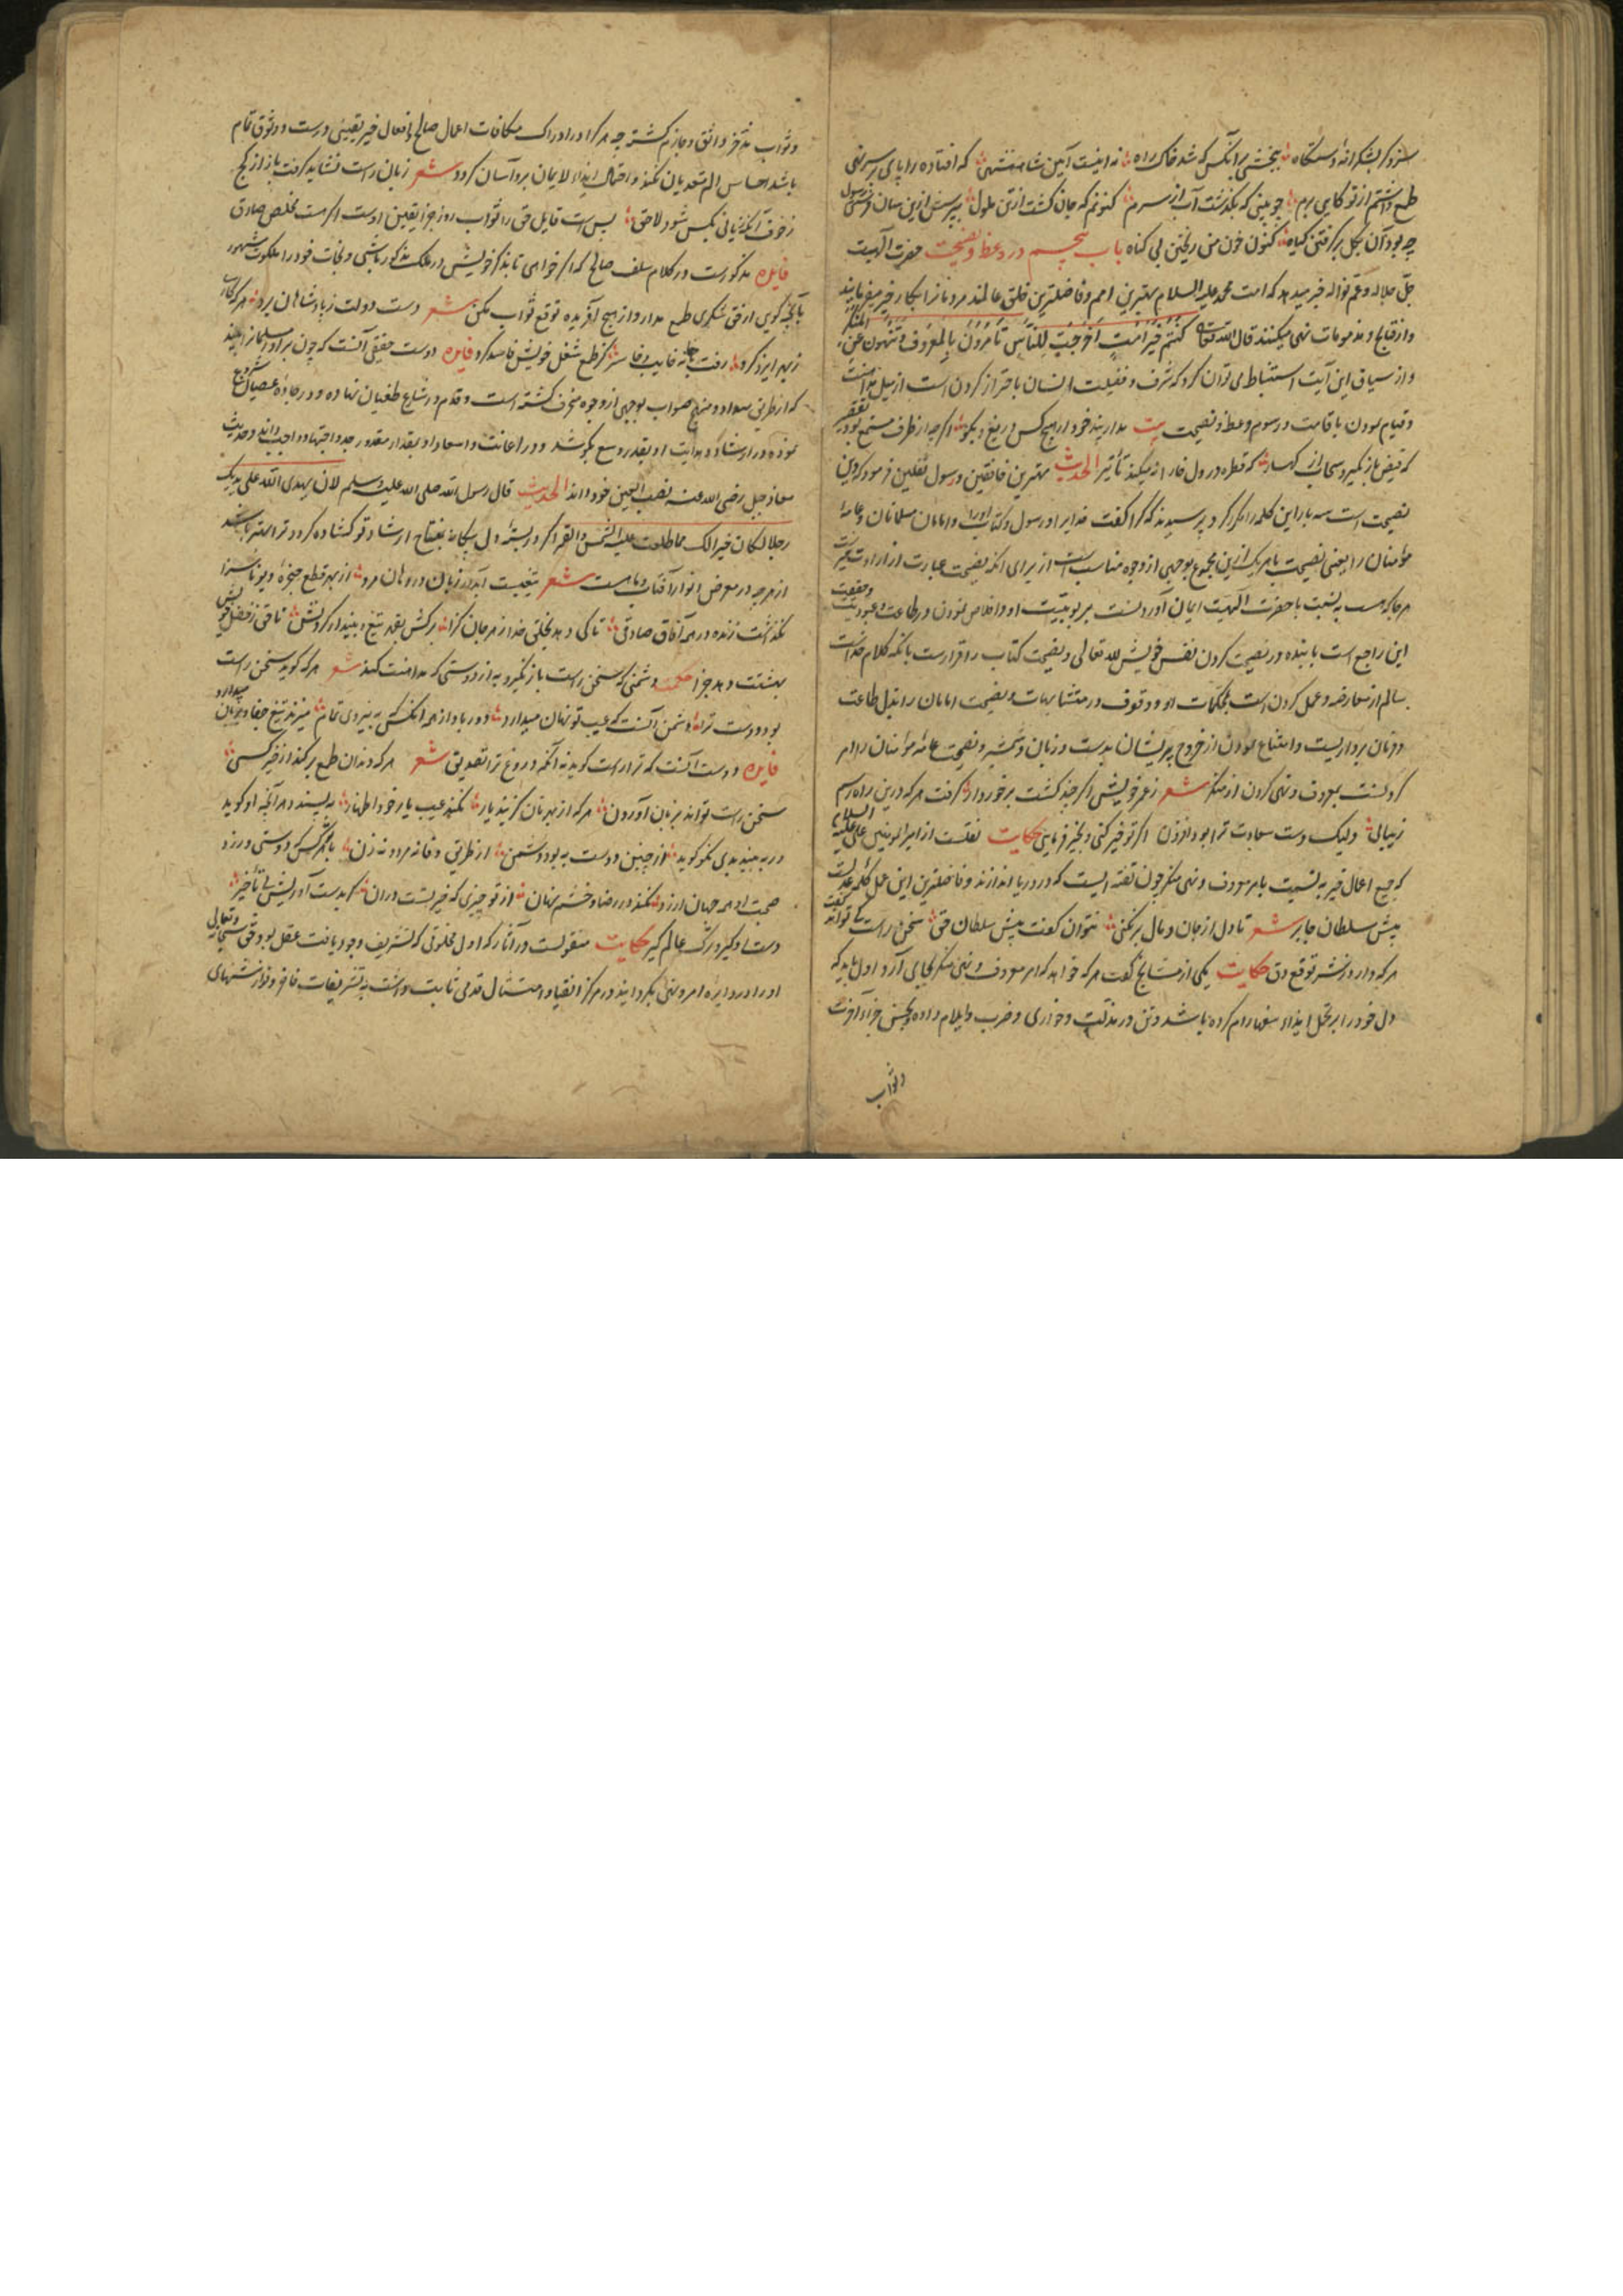 سزد گر بشکرانهٔ دستگاه ببخشی برآنکس که شد خاک راه نه اینست آیین شاهنشهی که افتاده را پای بر سر نهی
طمع داشتم از تو کایی برم چو بینی که بگذشت آب از سرم کنونم که جان گشت ازتن ملول بپرسش ازین سان فرستی رسول
چه بود آن بگل برگرفتن گیاه کنون خون من ریختن بی گناه باب پنجم در وعظ و نصیحت حضرت الهیت
جل جلاله و عم نواله خبر میدهد که امت محمد علیه السلام بهترین امم و فاضلترین خلق عالمند مردمانرا بکار خیر میفرمایند
و از قبایح و مذمومات نهی میکنند قال الله تعالی کنتم خیر امة اخرجت للناس تأمرون بالمعروف و تنهون عن المنکر
و از سیاق این آیت استنباط می توان کرد که شرف و فضیلت انسان باحتراز کردن است از میل مداهنت
و قیام نمودن باقامت رسوم وعظ و نصیحت بیت مدار پند خود از هیچ کس دریغ و بگو اگرچه از طرف مستمع بود تقصیر
که فیض باز نگیرد سحاب از کهسار که قطره در دل خارا نمیکند تأثیر الحدیث بهترین خافقین و رسول ثقلین فرمود که دین
نصیحت است سه بار این کلمه را مکرر کرد پرسیدند که کرا گفت خدایرا و رسول و کتاب اورا و امامان مسلمانان و عامهٔ
مؤمنان را یعنی نصیحت با هر یک ازین مجموع بوجهی از وجوه مناسب است از برای آنکه نصیحت عبارت از ارادت خیرست
هرجا که هست به نسبت با حضرت الهیت ایمان آوردنست بربوبیت او و اخلاص نمودن در طاعت و عبودیت و حقیقت
این راجع است با بنده در نصیحت کردن نفس خویش لله تعالی و نصیحت کتاب را اقرارست بانکه کلام خداست
سالم از معارضه و عمل کردن است بمحکمات او و وقوف در متشابهات و نصیحت امامان را بذل طاعت
و فرمان برداریست و امتناع نمودن از خروج بریشان بدست و زبان و شمشیر و نصیحت عامهٔ مؤمنان را امر
کردنست بمعروف و نهی کردن از منکر شعر ز عمر خویش اگر چند گشت برخوردار گرفت هر که درین راه رسم
زیبایی ولیک دست سعادت ترا بود افزون اگر تو خیر کنی و بخیر فرمایی حکایت نقلست از امیر المومنین علی علیه السلام
که جمیع اعمال خیر به نسبت بامر معروف و نهی منکر چون تفته ایست که در دریا اندازند و فاضلترین این عمل کلمهٔ عدلست
پیش سلطان جابر شعر تا دل از جان و مال برنکنی نتوان گفت پیش سلطان حق سخن راست کی تواند گفت
هر که دارد ز بشر توقع دق حکایت یکی از مشایخ گفت هر که خواهد که امر معروف و نهی منکر بجای آرد اول باید که
دل خود را بر تحمل ایذاء سفها رام کرده باشد و تن در مذلت و خواری و ضرب و ایلام داده و بحسن جزاء آخرت
وثواب
وثواب مدخر واثق و جازم گشته چه هر کرا در ادراک مکافات اعمال صالح و افعال خیر یقینی درست و وثوق تام
باشد احساس الم تعدیان نکند و احتمال ایذاء لایمان برو آسان گردد شعر زبان راست نشاید گرفت باز از کج
ز خوف آنکه زیانی بکس شود لاحق بس است قایل حق را ثواب روز جزا یقین اوست اگر هست مخلص صادق
فایده مذکورست در کلام سلف صالح که اگر خواهی تا بذکر خویش در ملک مذکور باشی و نجات خود را ملکوت مشهور
بآنچه گویی از حق شکری طمع مدار و از هیچ آفریده توقع ثواب مکن شعر دست دولت ز پادشاهان برد هر که کار
ز بهر ایزد کرد رفت جانه خایب و خاسر کز طمع شغل خویش فاسد کرد فایده دوست حقیقی آنست که چون برادر مسلمانرا بیند
که از طریق سداد و منهج صواب بوجهی از وجوه منحرف گشته است و قدم در شارع طغیان نهاده و در جادهٔ عصیان شروع
نموده در ارشاد و هدایت او بقدر وسع بکوشد و در اعانت و اسعاد او بمقدار مقدور جد و اجتهاد واجب داند و حدیث
معاذ جبل رضی الله عنه نصب العین خود داند الحدیث قال رسول الله صلی الله علیه وسلم لان یهدی الله علی یدیک
رجلا لکان خیرا لک مما طلعت علیه الشمس والقمر اگر در بستهٔ دل بیگانه بمفتاح ارشاد تو گشاده گردد ترا بهتر باشد
از هر چه در معرض انوار آفتاب و ماهست شعر تیغیست آبدار زبان در دهان مرد از بهر قطع حنجرهٔ دیو ناسزا
نگذاشت زنده در همه آفاق صادقی تا کی دهد بخلق خدا زهر جان گزا برکش بقهر تیغ و بیندار گردنش تا حق ز فضل خویش
بهشتت دهد جزا حکمت دشمنی که سخن راست باز نگیرد به از دوستی که مداهنت کند شعر هر که گوید سخن راست
بود دوست ترا دشمن آنست که عیب تو نهان میدارد دور باد از همه آنکس که به نیروی تمام میزند تیغ جفا و پنهان میدارد
فایده دوست آنست که ترا راست گوید نه آنکه دروغ ترا تصدیق شعر هر که دندان طمع برکند از خیر کسی
سخن راست تواند بزبان آوردن هر که از بهر نان گزیند یار نکند عیب یار خود اظهار به پسندد هر آنچه او گوید
ور به بیند بدی نکو گوید از چنین دوست به بود دشمن از طریق وفا نه مرد و نه زن با هر آنکس که دوستی ورزد
صحبت او همه جهان ارزد نکند در رضا و خشم نهان از تو چیزی که خیر تست در ان گر بدست آوریش بی تأخیر
دست او گیر و ترک عالم گیر حکایت منقولست در آثار که اول مخلوقی که تشریف وجود یافت عقل بود حق سبحانه وتعالی
او را در دایرهٔ امر و نهی بگردانید در مرکز انقیاد و امتثال قدمی ثابت داشت به تشریفات فاخر و نوازشهای